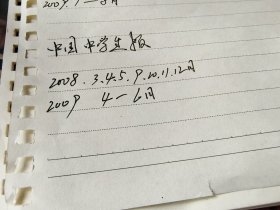 2009.1—8月
中国中学生报
2008.3.4.5.9.10.11.12月
2009 4—6月